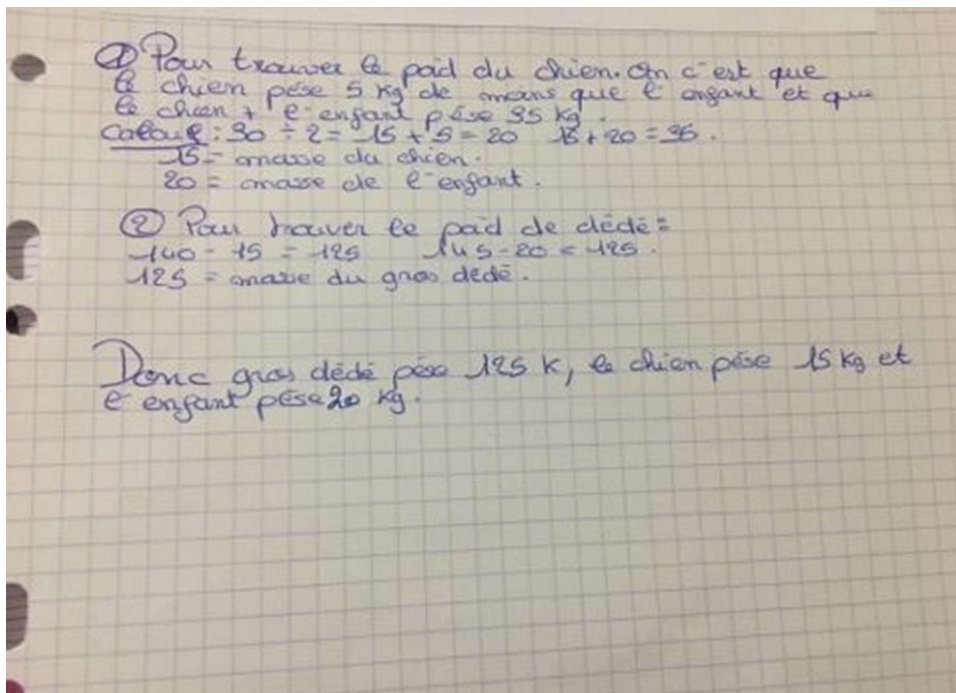 ① Pour trouver le poid du chien. On c'est que
le chien pèse 5 kg de moins que l'enfant et que
le chien + l'enfant pèse 35 kg.
Calcul : 30 ÷ 2 = 15 + 5 = 20 15 + 20 = 35.
15 = masse du chien.
20 = masse de l'enfant.
② Pour trouver le poid de dédé =
140 - 15 = 125 145 - 20 = 125.
125 = masse du gros dédé.
Donc gros dédé pèse 125 K, le chien pèse 15 kg et
l'enfant pèse 20 kg.